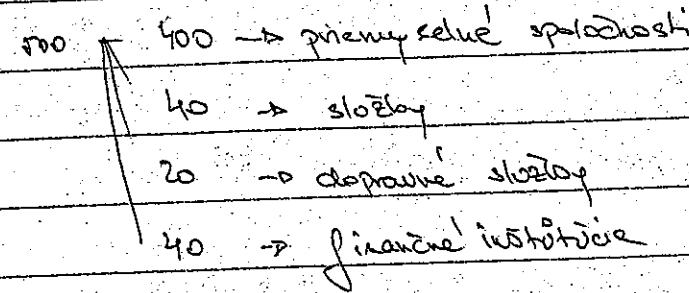 500 400 → priemyselné spoločnosti
40 → služby
20 → dopravné služby
40 → finančné inštitúcie